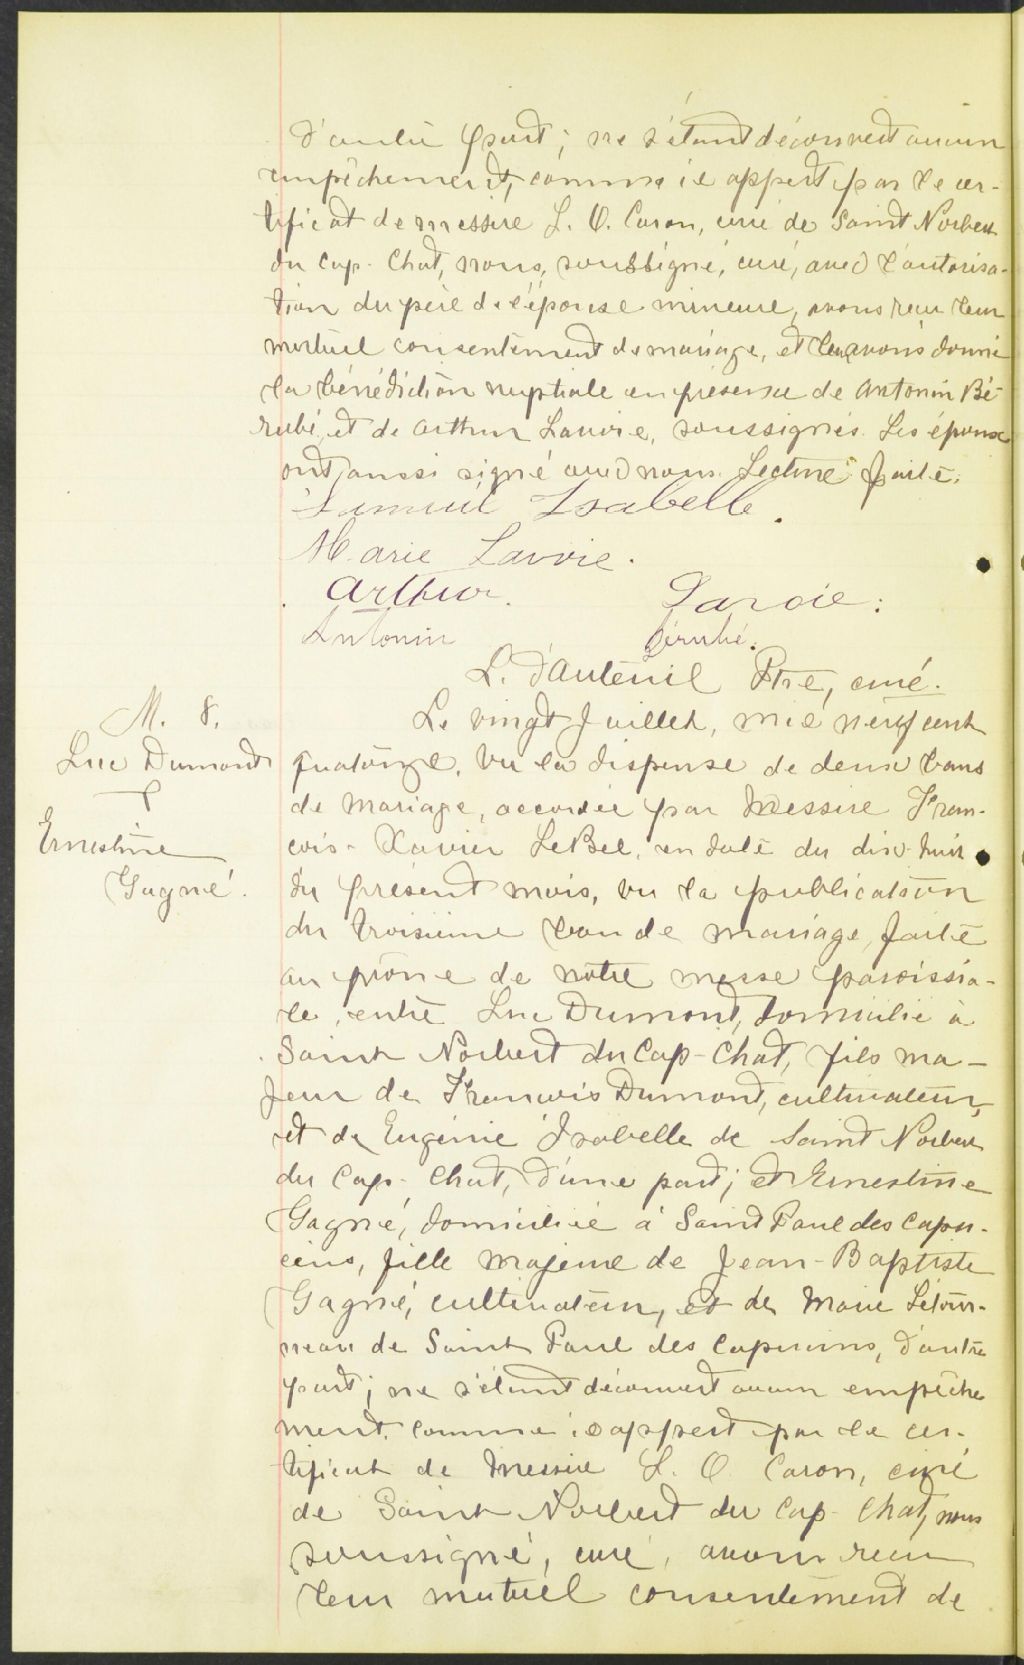 d'autre part; ne s'étant découvert aucun
empêchement, comme il appert par le cer-
tificat de messire L. O. Caron, curé de Saint Norbert
du Cap-Chat, nous, soussigné, curé, avec l'autorisa-
tion du père de l'épouse mineure, avons reçu leur
mutuel consentement de mariage, et leur avons donné
la bénédiction nuptiale en présence de Antonin Bé-
rubé, et de Arthur Lavoie, soussignés. Les époux
ont aussi signé avec nous. Lecture faite.
Samuel Isabelle.
Marie Lavoie.
Arthur Lavoie.
Antonin Bérubé.
L. d'Auteuil Ptre, curé.
M. 8.
Luc Dumont
&
Ernestine
Gagné.
Le vingt Juillet, mil neuf cent
quatorze, vu la dispense de deux bans
de mariage, accordée par Messire Fran-
çois-Xavier LeBel, en date du dix-huit
du présent mois, vu la publication
du troisième ban de mariage, faite
au prône de notre messe paroissia-
le, entre Luc Dumont, domicilié à
Saint Norbert du Cap-Chat, fils ma-
jeur de François Dumont, cultivateur,
et de Eugénie Isabelle de Saint Norbert
du Cap-Chat, d'une part; et Ernestine
Gagné, domiciliée à Saint Paul des Capu-
cins, fille majeure de Jean-Baptiste
Gagné, cultivateur, et de Marie Létour-
neau de Saint Paul des Capucins, d'autre
part; ne s'étant découvert aucun empêche
ment, comme il appert par le cer-
tificat de Messire L. O. Caron, curé
de Saint Norbert du Cap-Chat, nous
soussigné, curé, avons reçu
leur mutuel consentement de